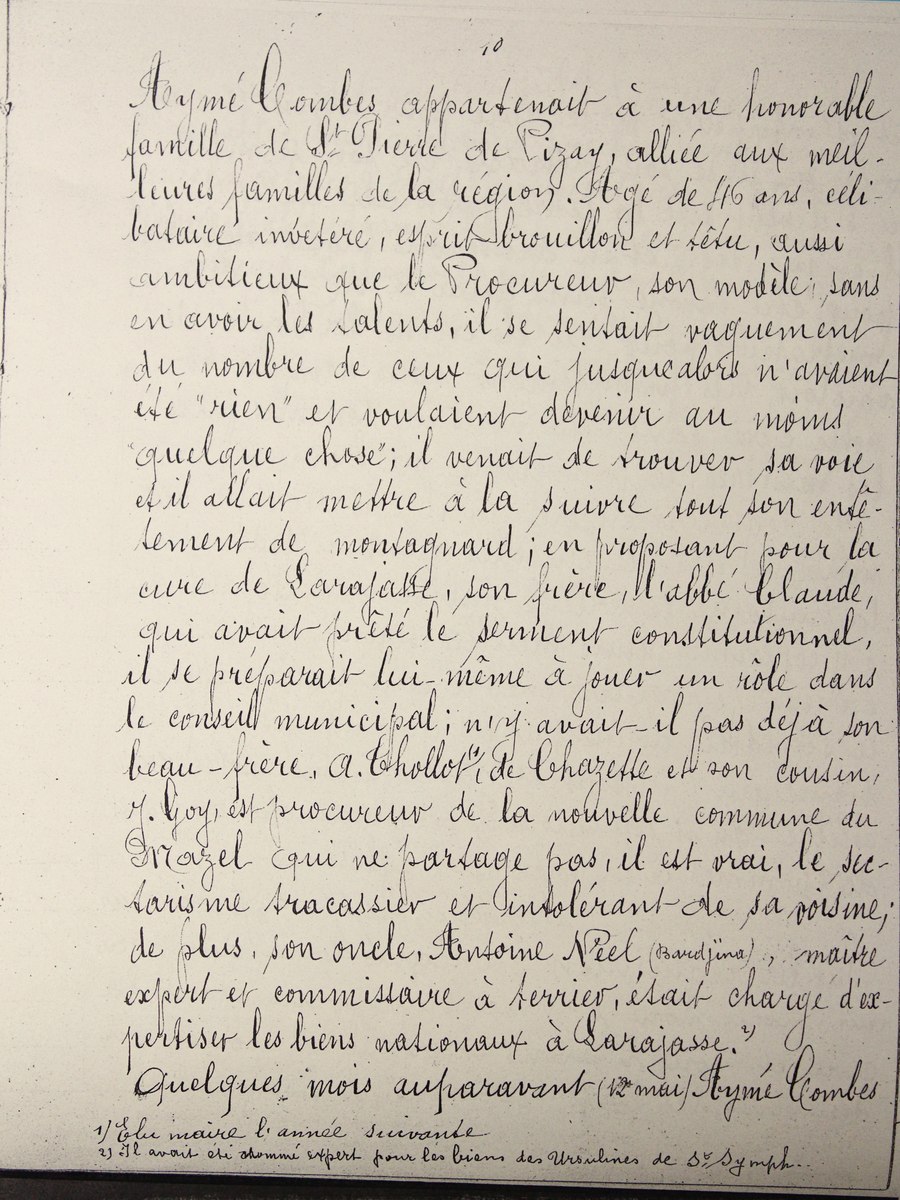 10
Aymé Combes appartenait à une honorable
famille de St Pierre de Pizay, alliée aux meil-
leures familles de la région. Agé de 46 ans, céli-
bataire invétéré, esprit brouillon et têtu, aussi
ambitieux que le Procureur, son modèle, sans
en avoir les talents, il se sentait vaguement
du nombre de ceux qui jusqu'alors n'avaient
été "rien" et voulaient devenir au moins
"quelque chose"; il venait de trouver sa voie
et il allait mettre à la suivre tout son entê-
tement de montagnard; en proposant pour la
cure de Larajasse, son frère, l'abbé Claude,
qui avait prêté le serment constitutionnel,
il se préparait lui-même à jouer un rôle dans
le conseil municipal; n'y avait-il pas déjà son
beau-frère, A. Thollot 1), de Chazette et son cousin,
J. Goy, est procureur de la nouvelle commune du
Mazel qui ne partage pas, il est vrai, le sec-
tarisme tracassier et intolérant de sa voisine;
de plus, son oncle, Antoine Néel (Bardjina), maître
expert et commissaire à terrier, était chargé d'ex-
pertiser les biens nationaux à Larajasse. 2)
Quelques mois auparavant (12 mai) Aymé Combes
1) Elu maire l'année suivante
2) Il avait été nommé expert pour les biens des Ursulines de St Symph.